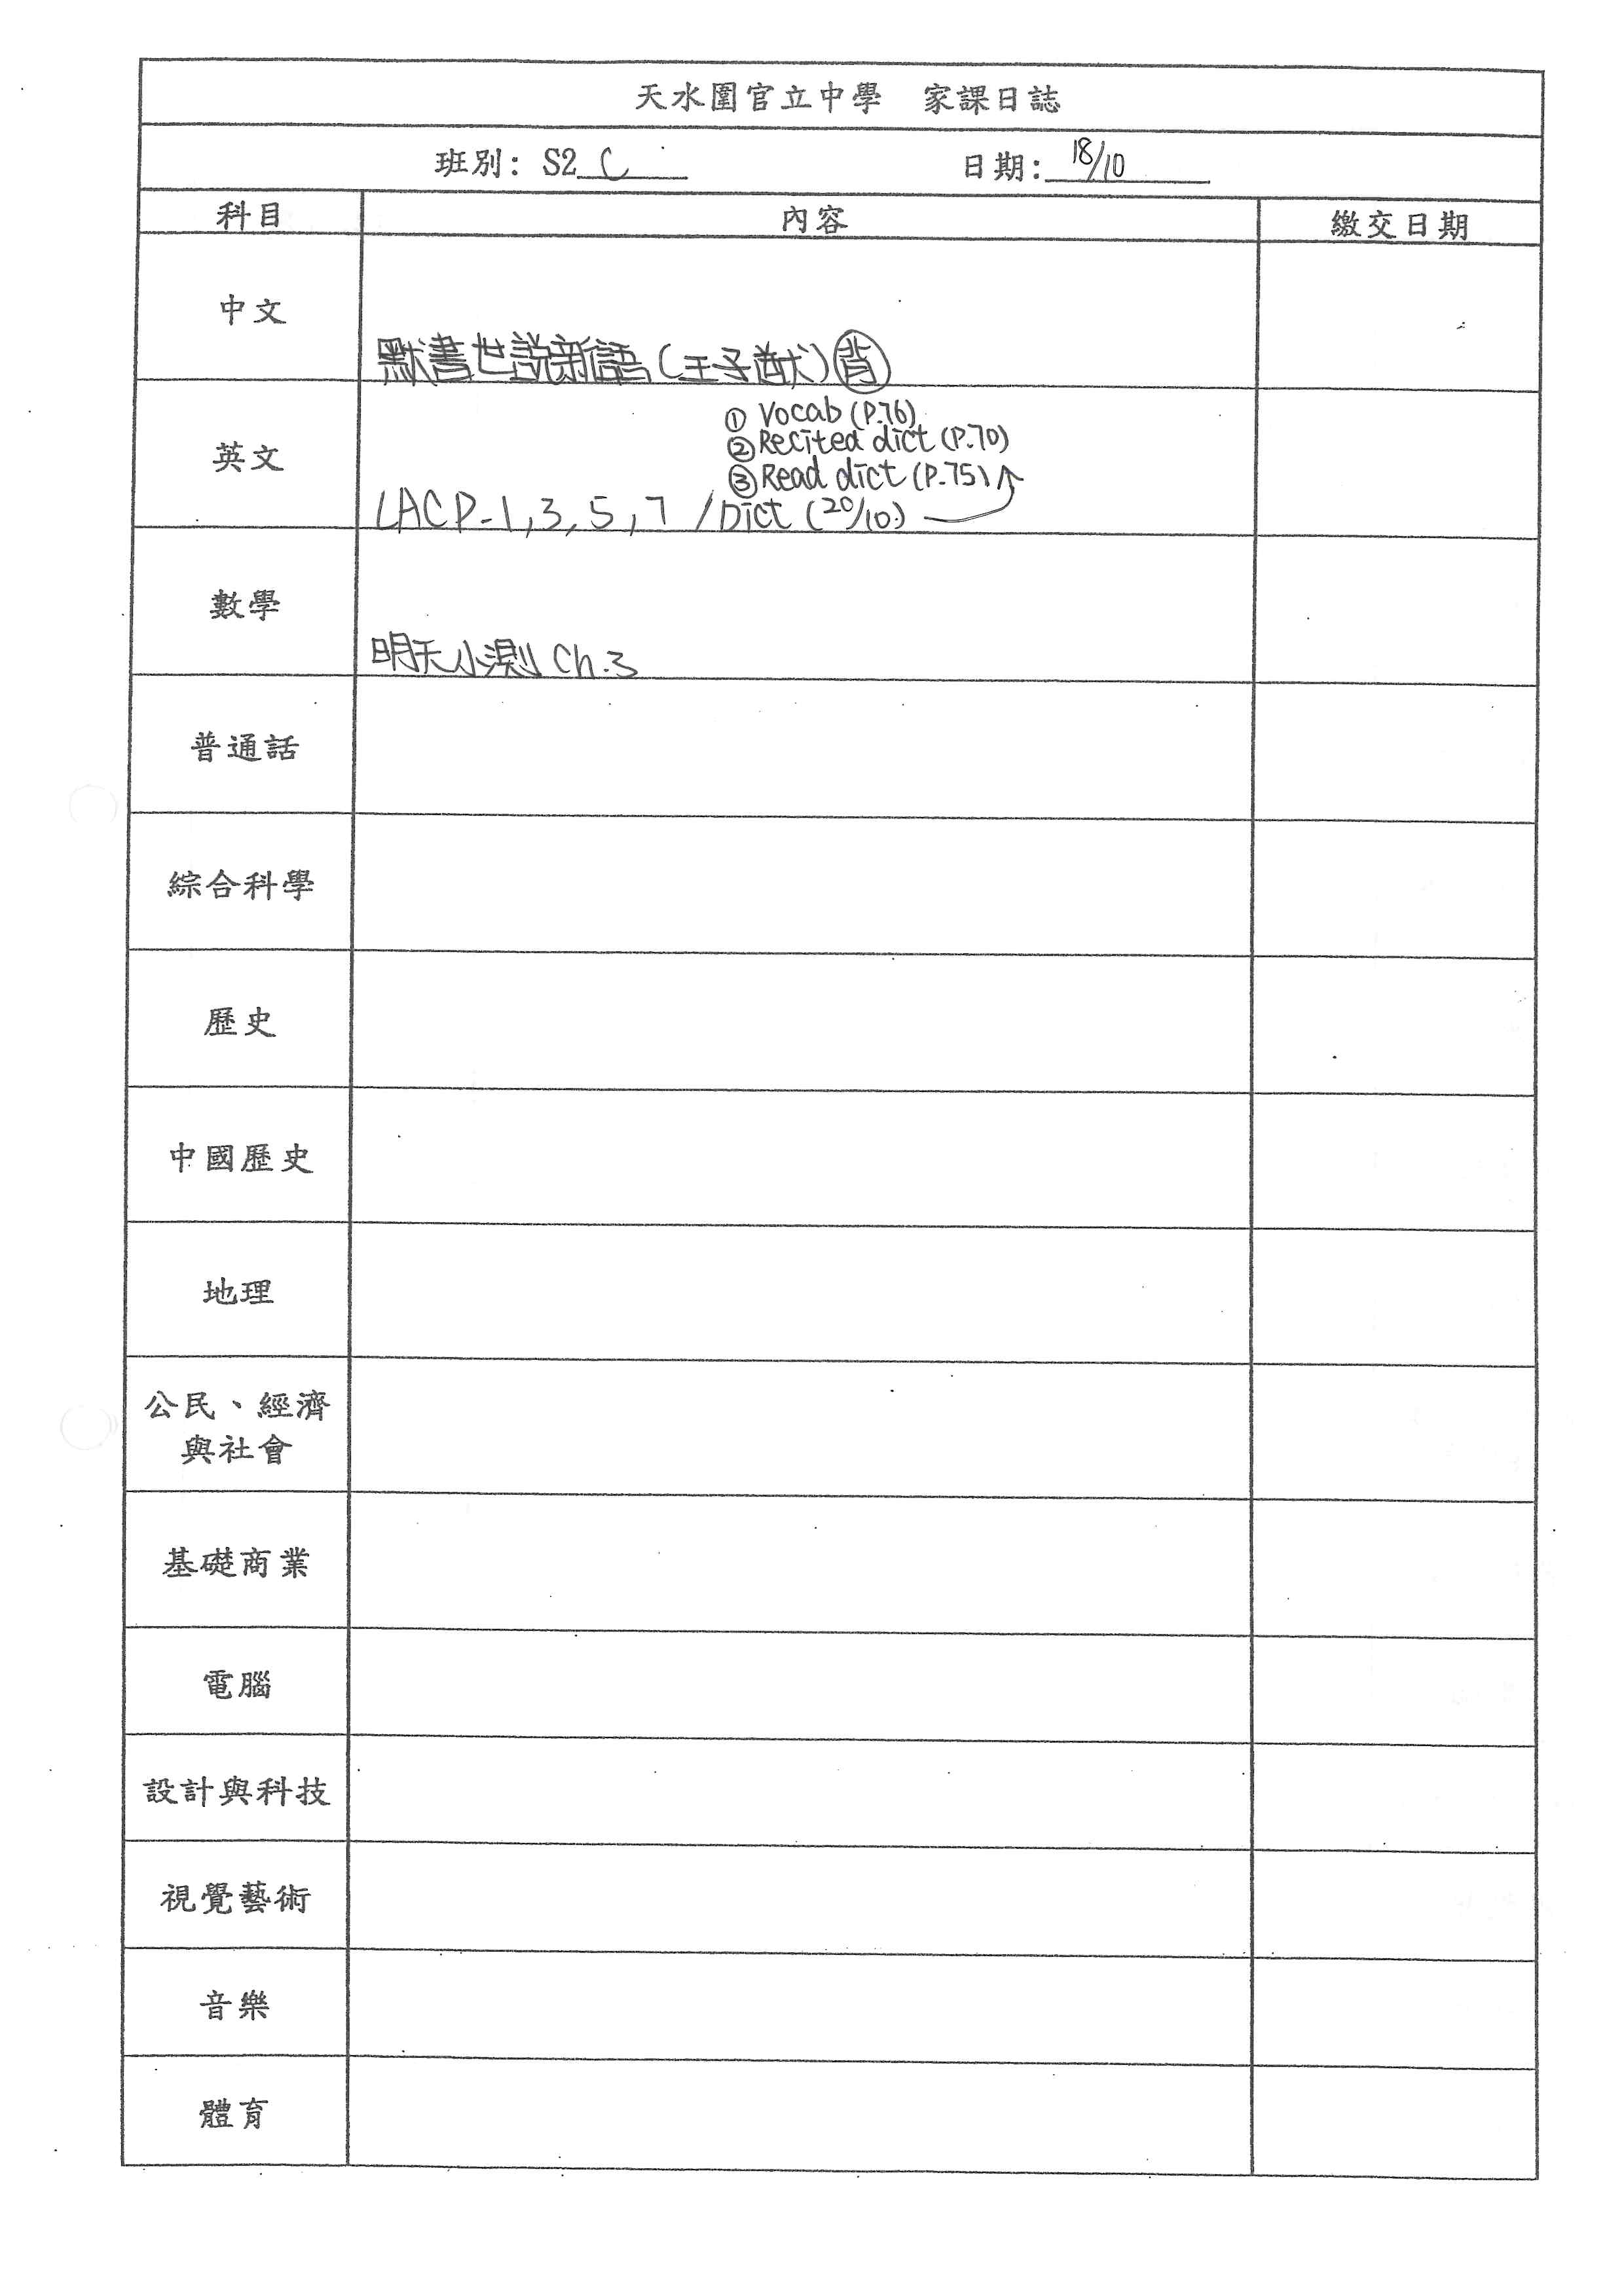 天水圍官立中學 家課日誌
班別: S2 C 日期: 18/10
科目 內容 繳交日期
中文 默書世說新語(王子猷)背
英文
① Vocab (P.76)
② Recited dict (P.70)
③ Read dict (P.75)
LAC P-1,3,5,7 / Dict (20/10)
數學 明天小測 Ch.3
普通話
綜合科學
歷史
中國歷史
地理
公民、經濟
與社會
基礎商業
電腦
設計與科技
視覺藝術
音樂
體育